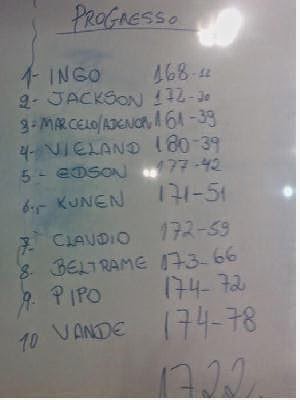 PROGRESSO
1- INGO 168-11
2- JACKSON 172-20
3- MARCELO/ADENOR 161-39
4- VIELAND 180-39
5- EDSON 177-42
6- KUNEN 171-51
7- CLAUDIO 172-59
8- BELTRAME 173-66
9. PIPO 174-72
10 VANDE 174-78
1722